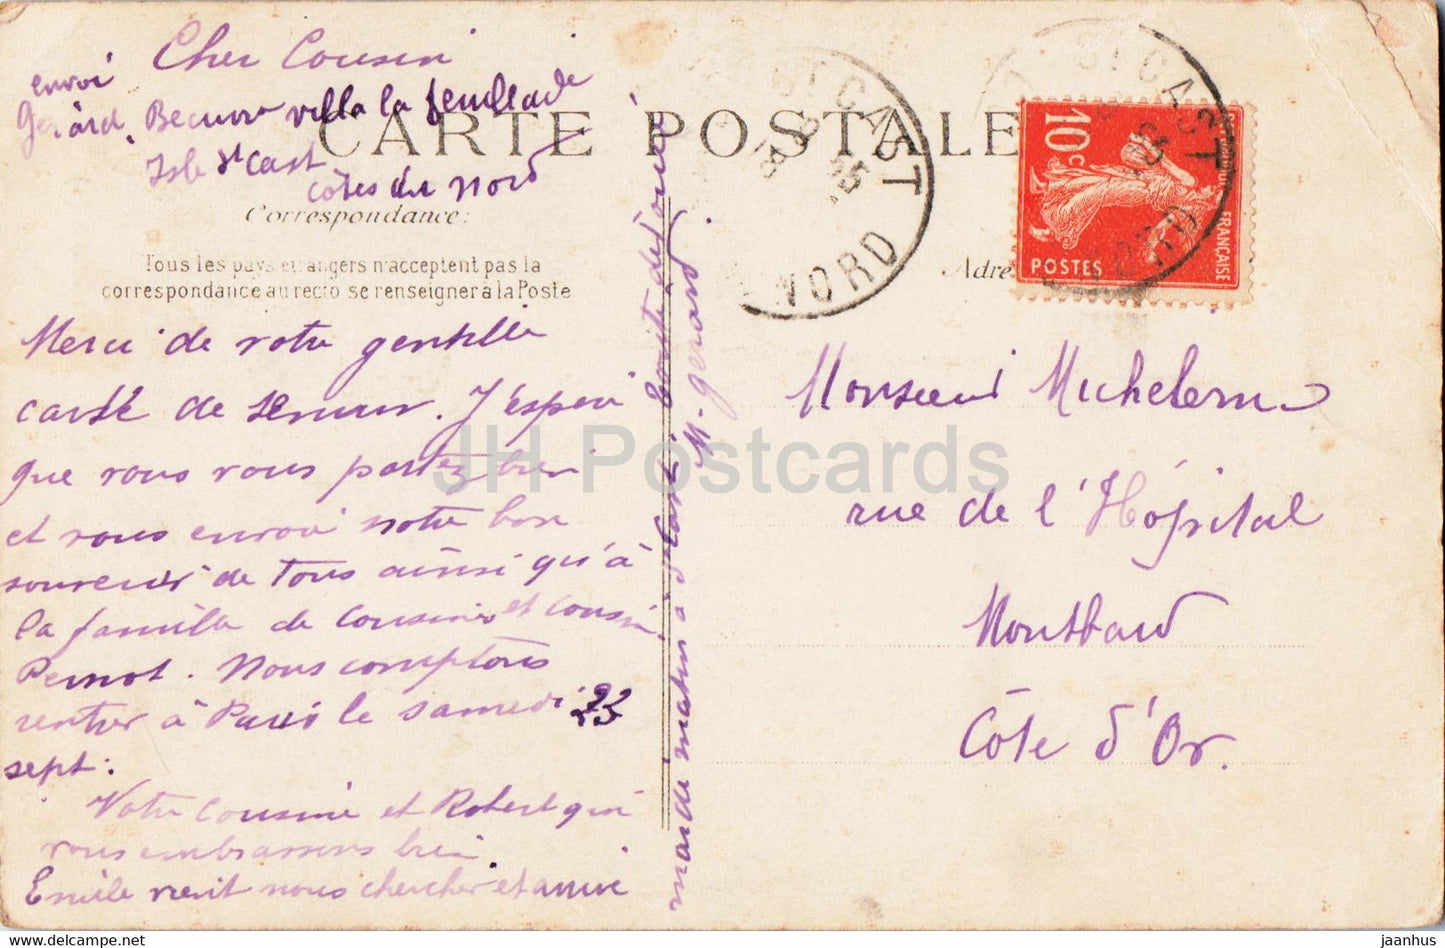 Cher Cousin
envoi
Gérard. villa la feuillade
Isle St Cast
côtes du Nord
CARTE POSTALE
Correspondance:
Tous les pays étrangers n'acceptent pas la
correspondance au recto se renseigner à la Poste
Merci de votre gentille
carte de semur. J'espère
que vous vous portez bien
et vous envoi notre bon
souvenir de tous ainsi qu'à
la famille de cousine et cousin
Pernot. Nous comptons
rentrer à Paris le samedi 23
sept.
Votre cousine et Robert qui
vous embrassons bien
Emile vient nous chercher et arrive
mardi matin à St Cast
M. gérard
ST CAST
NORD
ST CAST
NORD
10c
POSTES
FRANÇAISE
Adre
Monsieur
rue de l'Hôpital
Montbard
Côte d'Or.
JH Postcards
delcampe.net
jaanhus